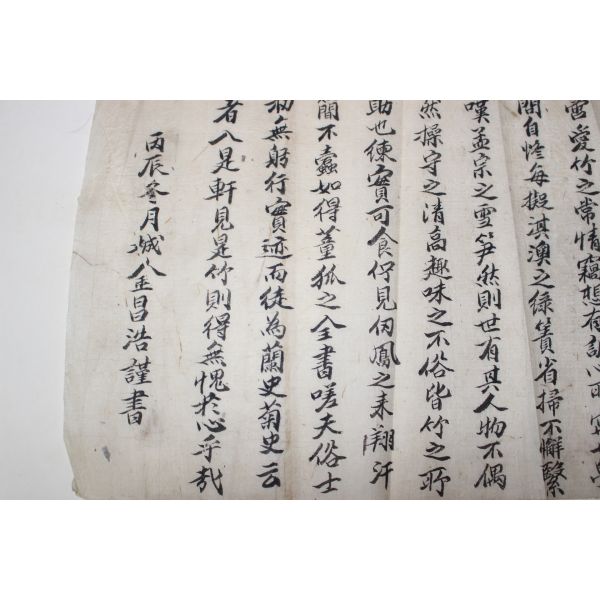 愛竹之常情竊想有
閒自修每擬淇澳之綠簀省掃不懈繄
嘆孟宗之雪笋然則世有其人物不偶
然操守之清高趣味之不俗皆竹之所
助也練實可食佇見鳳之來翔汗
簡不蠹如得董狐之全書嗟夫俗士
初無躬行實迹而徒為蘭史菊史云
者入是軒見是竹則得無愧於心乎哉
丙辰冬月城人金昌浩謹書